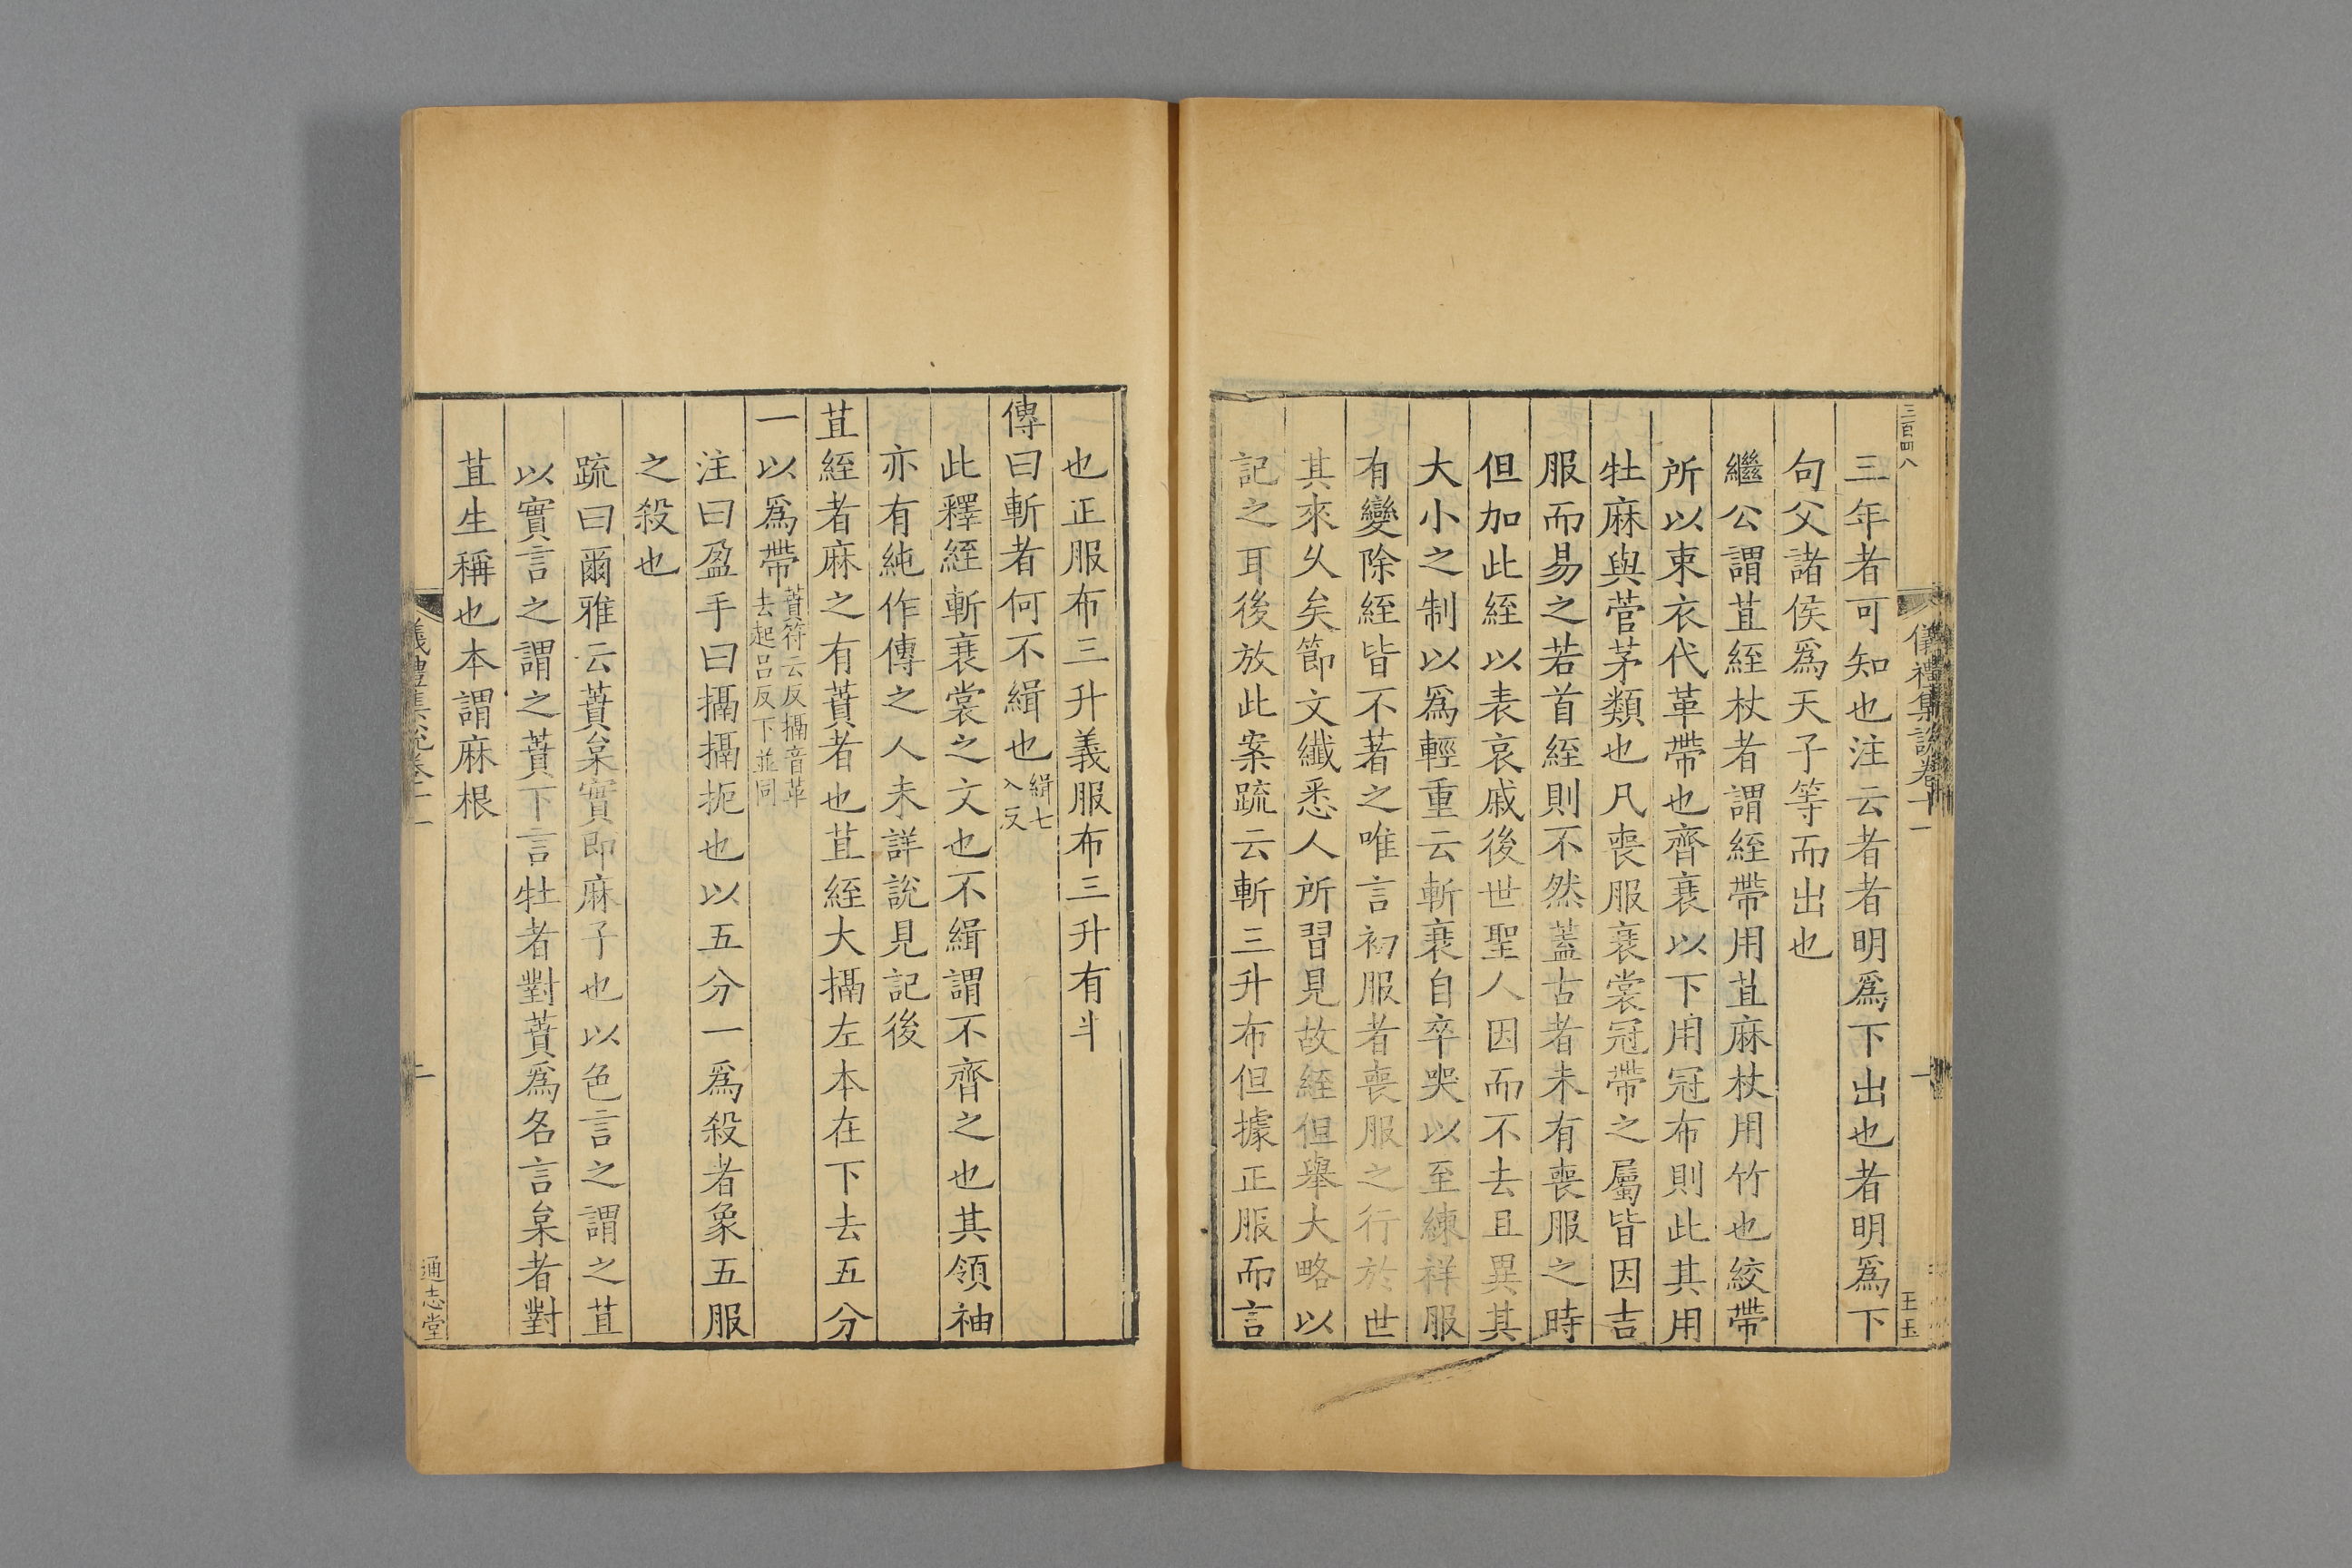 三百四八
儀禮集說卷十一
一
王玉
三年者可知也注云者者明爲下出也者明爲下
句父諸侯爲天子等而出也
繼公謂苴絰杖者謂絰帶用苴麻杖用竹也絞帶
所以束衣代革帶也齊衰以下用冠布則此其用
牡麻與菅茅類也凡喪服衰裳冠帶之屬皆因吉
服而易之若首絰則不然蓋古者未有喪服之時
但加此絰以表哀戚後世聖人因而不去且異其
大小之制以爲輕重云斬衰自卒哭以至練祥服
有變除絰皆不著之唯言初服者喪服之行於世
其來乆矣節文纖悉人所習見故絰但舉大略以
記之耳後放此案疏云斬三升布但據正服而言
也正服布三升義服布三升有半
傳曰斬者何不緝也緝七入反
此釋絰斬衰裳之文也不緝謂不齊之也其領袖
亦有純作傳之人未詳說見記後
苴絰者麻之有蕡者也苴絰大搹左本在下去五分
一以爲帶蕡符云反搹音革去起呂反下並同
注曰盈手曰搹搹扼也以五分一爲殺者象五服
之殺也
疏曰爾雅云蕡枲實即麻子也以色言之謂之苴
以實言之謂之蕡下言牡者對蕡爲名言枲者對
苴生稱也本謂麻根
儀禮集說卷十一
二
通志堂